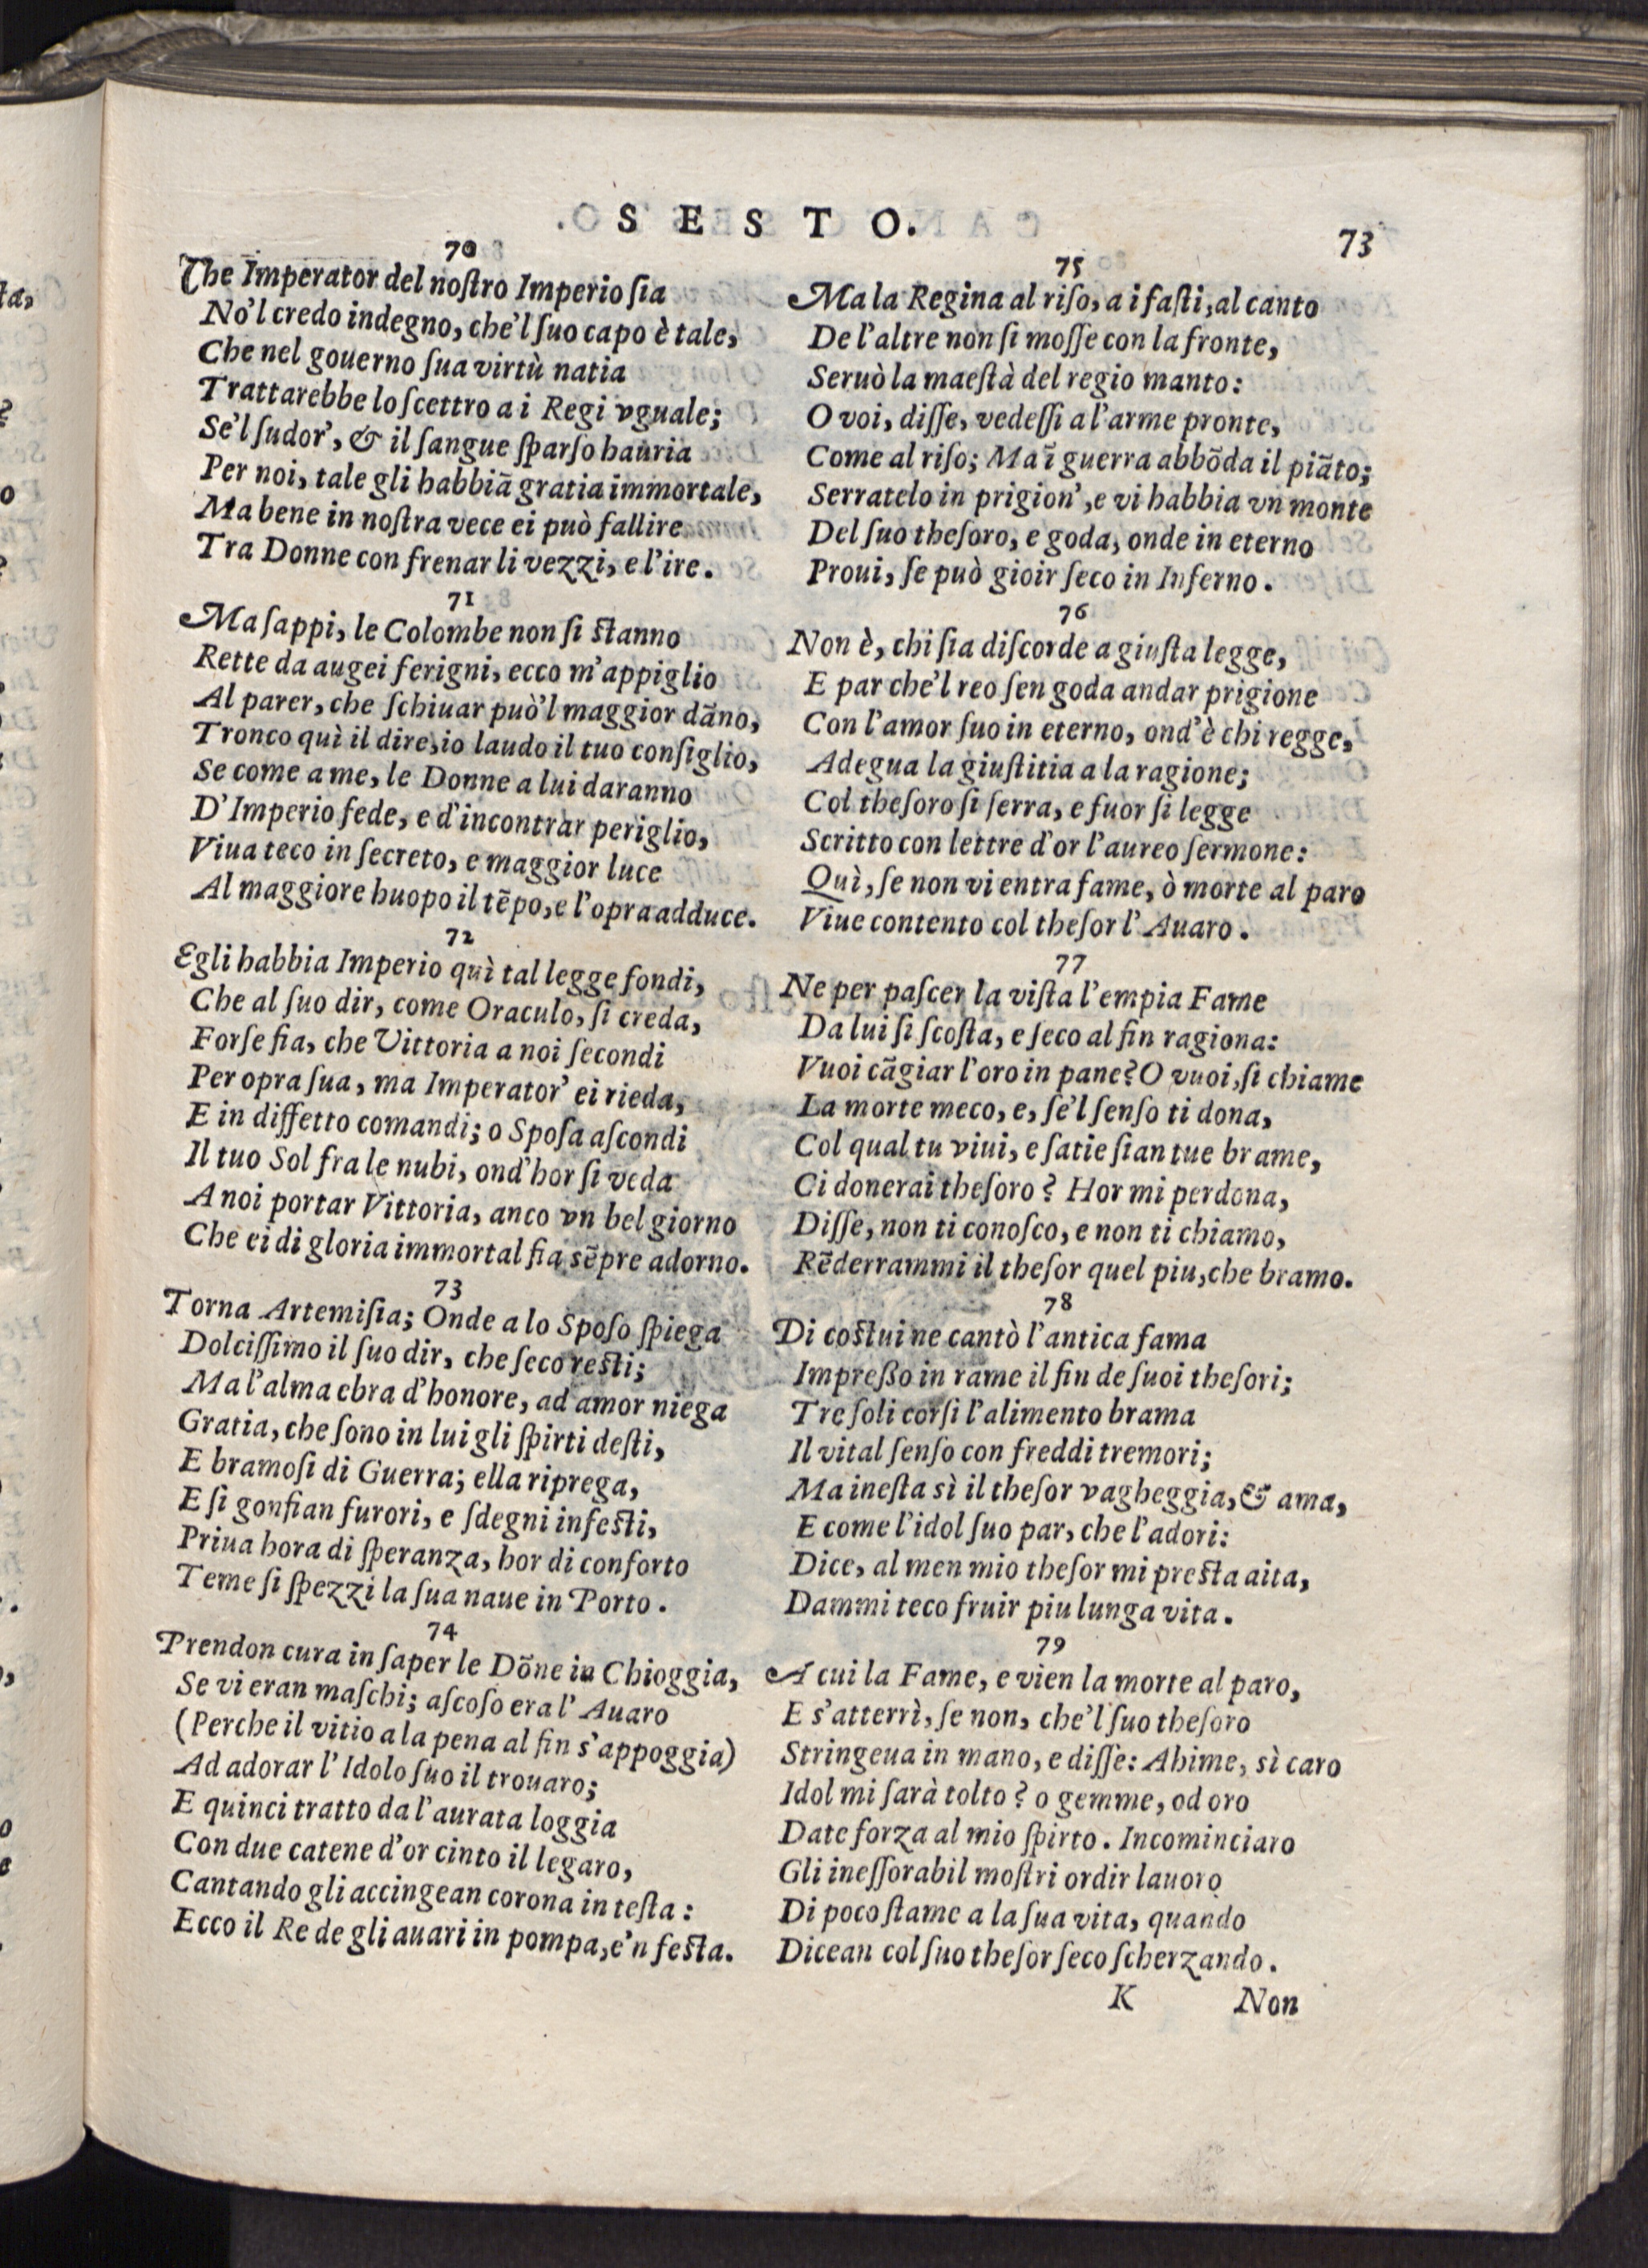 SESTO.
73
70
Che Imperator del noſtro Imperio ſia
No'l credo indegno, che'l ſuo capo è tale,
Che nel gouerno ſua virtù natia
Trattarebbe lo ſcettro a i Regi vguale;
Se'l ſudor', & il ſangue ſparſo hauria
Per noi, tale gli habbiā gratia immortale,
Ma bene in noſtra vece ei può fallire
Tra Donne con frenar li vezzi, e l'ire.
71
Ma ſappi, le Colombe non ſi ſtanno
Rette da augei ferigni, ecco m'appiglio
Al parer, che ſchiuar può'l maggior dāno,
Tronco quì il dire, io laudo il tuo conſiglio,
Se come a me, le Donne a lui daranno
D'Imperio fede, e d'incontrar periglio,
Viua teco in ſecreto, e maggior luce
Al maggiore huopo il tēpo, e l'opra adduce.
72
Egli habbia Imperio quì tal legge fondi,
Che al ſuo dir, come Oraculo, ſi creda,
Forſe fia, che Vittoria a noi ſecondi
Per opra ſua, ma Imperator' ei rieda,
E in diffetto comandi; o Spoſa aſcondi
Il tuo Sol fra le nubi, ond'hor ſi veda
A noi portar Vittoria, anco vn bel giorno
Che ei di gloria immortal fia sēpre adorno.
73
Torna Artemiſia; Onde a lo Spoſo ſpiega
Dolciſſimo il ſuo dir, che ſeco reſti;
Ma l'alma ebra d'honore, ad amor niega
Gratia, che ſono in lui gli ſpirti deſti,
E bramoſi di Guerra; ella riprega,
E ſi gonfian furori, e ſdegni infeſti,
Priua hora di ſperanza, hor di conforto
Teme ſi ſpezzi la ſua naue in Porto.
74
Prendon cura in ſaper le Dōne in Chioggia,
Se vi eran maſchi; aſcoſo era l'Auaro
(Perche il vitio a la pena al fin s'appoggia)
Ad adorar l'Idolo ſuo il trouaro;
E quinci tratto da l'aurata loggia
Con due catene d'or cinto il legaro,
Cantando gli accingean corona in teſta:
Ecco il Re de gli auari in pompa, e'n feſta.
75
Ma la Regina al riſo, a i faſti, al canto
De l'altre non ſi moſſe con la fronte,
Seruò la maeſtà del regio manto:
O voi, diſſe, vedeſſi a l'arme pronte,
Come al riſo; Ma ī guerra abbōda il piāto;
Serratelo in prigion', e vi habbia vn monte
Del ſuo theſoro, e goda, onde in eterno
Proui, ſe può gioir ſeco in Inferno.
76
Non è, chi ſia diſcorde a giuſta legge,
E par che'l reo ſen goda andar prigione
Con l'amor ſuo in eterno, ond'è chi regge,
Adegua la giuſtitia a la ragione;
Col theſoro ſi ſerra, e fuor ſi legge
Scritto con lettre d'or l'aureo ſermone:
Quì, ſe non vi entra fame, ò morte al paro
Viue contento col theſor l'Auaro.
77
Ne per paſcer la viſta l'empia Fame
Da lui ſi ſcoſta, e ſeco al fin ragiona:
Vuoi cāgiar l'oro in pane? O vuoi, ſi chiame
La morte meco, e, ſe'l ſenſo ti dona,
Col qual tu viui, e ſatie ſian tue brame,
Ci donerai theſoro? Hor mi perdona,
Diſſe, non ti conoſco, e non ti chiamo,
Rēderrammi il theſor quel piu, che bramo.
78
Di coſtui ne cantò l'antica fama
Impreßo in rame il fin de ſuoi theſori;
Tre ſoli corſi l'alimento brama
Il vital ſenſo con freddi tremori;
Ma ineſta sì il theſor vagheggia, & ama,
E come l'idol ſuo par, che l'adori:
Dice, al men mio theſor mi preſta aita,
Dammi teco fruir piu lunga vita.
79
A cui la Fame, e vien la morte al paro,
E s'atterrì, ſe non, che'l ſuo theſoro
Stringeua in mano, e diſſe: Ahime, sì caro
Idol mi ſarà tolto? o gemme, od oro
Date forza al mio ſpirto. Incominciaro
Gli ineſſorabil moſtri ordir lauoro
Di poco ſtame a la ſua vita, quando
Dicean col ſuo theſor ſeco ſcherzando.
K Non